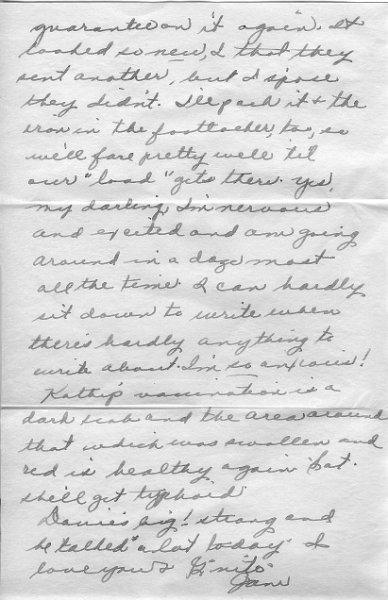 guarantee on it again. It
looked so new, I that they
sent another, but I s'pose
they didn't. I'll pack it & the
iron in the footlocker, too, so
we'll fare pretty well 'til
our "load" gets there. Yes,
my darling, I'm nervous
and excited and am going
around in a daze most
all the time. I can hardly
sit down to write when
there's hardly anything to
write about. I'm so anxious!
Kathy's vaccination is a
dark scab and the area around
that which was swollen and
red is healthy again. Sat.
she'll get typhoid.
Davie's big! strong and
he talked "a lot" today. I
love you &
Jane